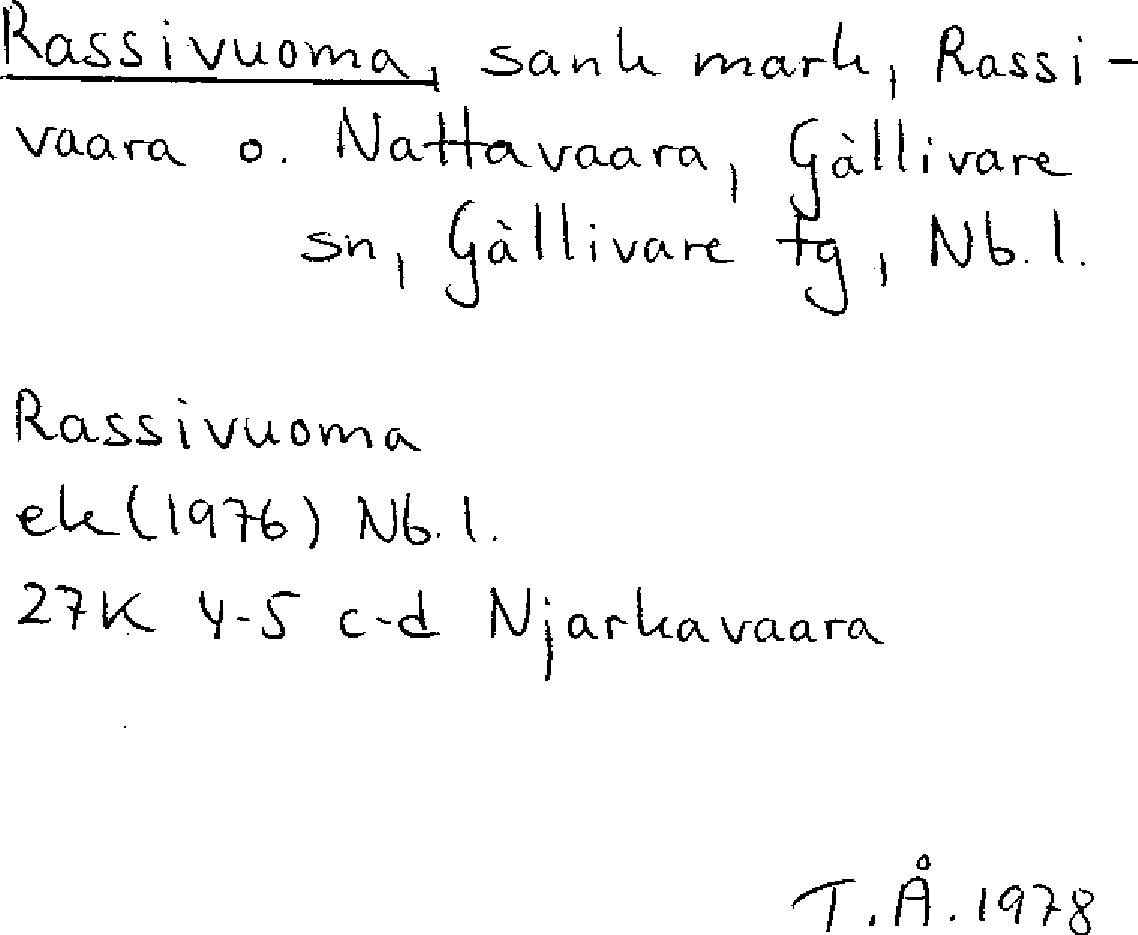 Rassivuoma, sank mark, Rassi-
vaara o. Nattavaara, Gällivare
sn, Gällivare tg, Nb.l.
Rassivuoma
ek (1976) Nb.l.
27K 4-5 c-d Njarkavaara
T.Å. 1978